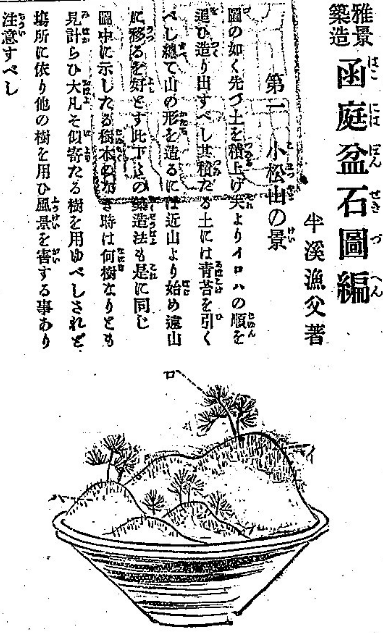 雅景築造
函庭盆石圖編
半溪漁父著
第一 小松山の景
圖の如く先づ土を積上げ夫よりイロハの順を
追ひ造り出すべし其積たる土には青苔を引く
べし總て山の形を造るには近山より始め遠山
に移るを好とす此下込の築造法も是に同じ
圖中に示したる樹木のなき時は何樹なりとも
見計らひ大凡そ似寄たる樹を用ゆべしされど
場所に依り他の樹を用ひ風景を害する事あり
注意すべし
ロ
イ